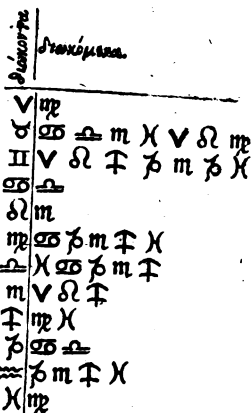 διώκοντα διωκόμενα.
♈ ♍
♉ ♋ ♎ ♏ ♓ ♈ ♌ ♍
♊ ♈ ♌ ♐ ♑ ♏ ♑ ♓
♋ ♎
♌ ♏
♍ ♋ ♑ ♏ ♐ ♓
♎ ♓ ♋ ♑ ♏ ♐
♏ ♈ ♌ ♐
♐ ♍ ♓
♑ ♋ ♎
♒ ♑ ♏ ♐ ♓
♓ ♍